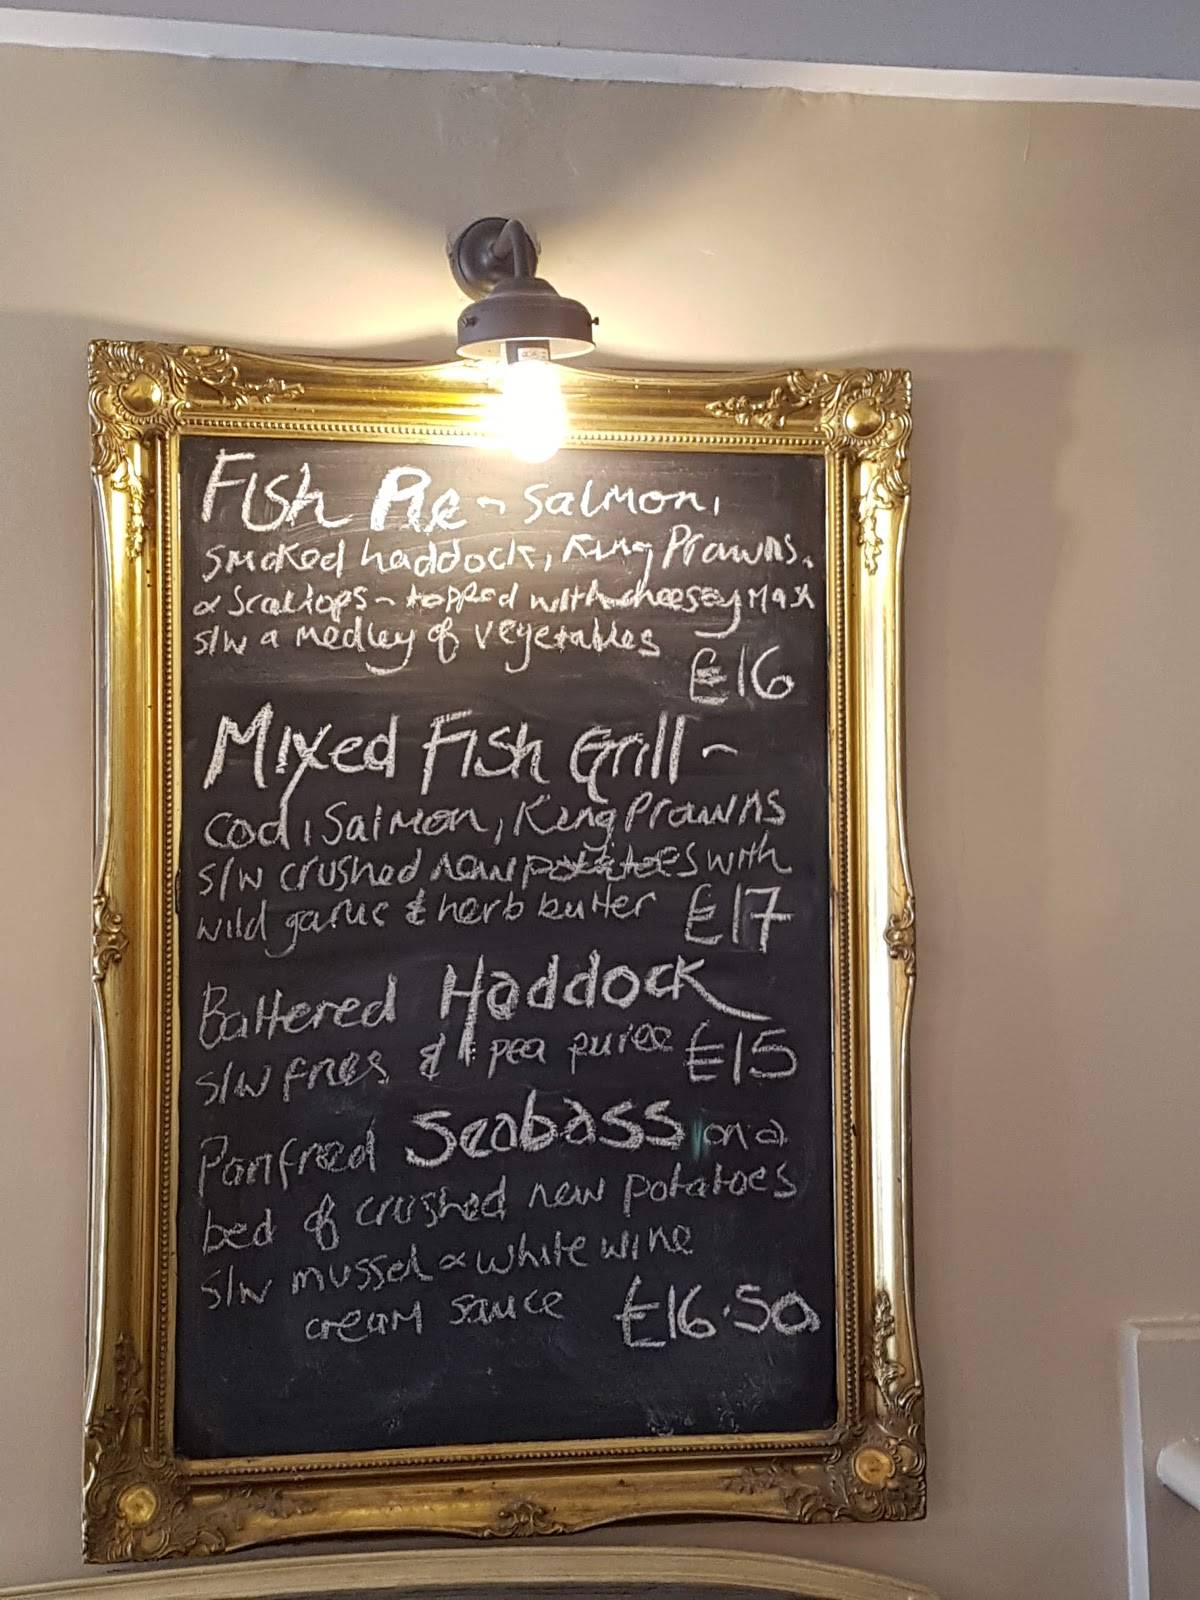 Fish Pie ~ Salmon,
smoked haddock, King Prawns,
& Scallops ~ topped with cheesey Mash
s/w a medley of vegetables
£16
Mixed Fish Grill ~
cod, Salmon, King Prawns
s/w crushed new potatoes with
wild garlic & herb butter £17
Battered Haddock
s/w fries & pea puree £15
Panfried Seabass on a
bed of crushed new potatoes
s/w mussel & white wine
cream sauce £16.50